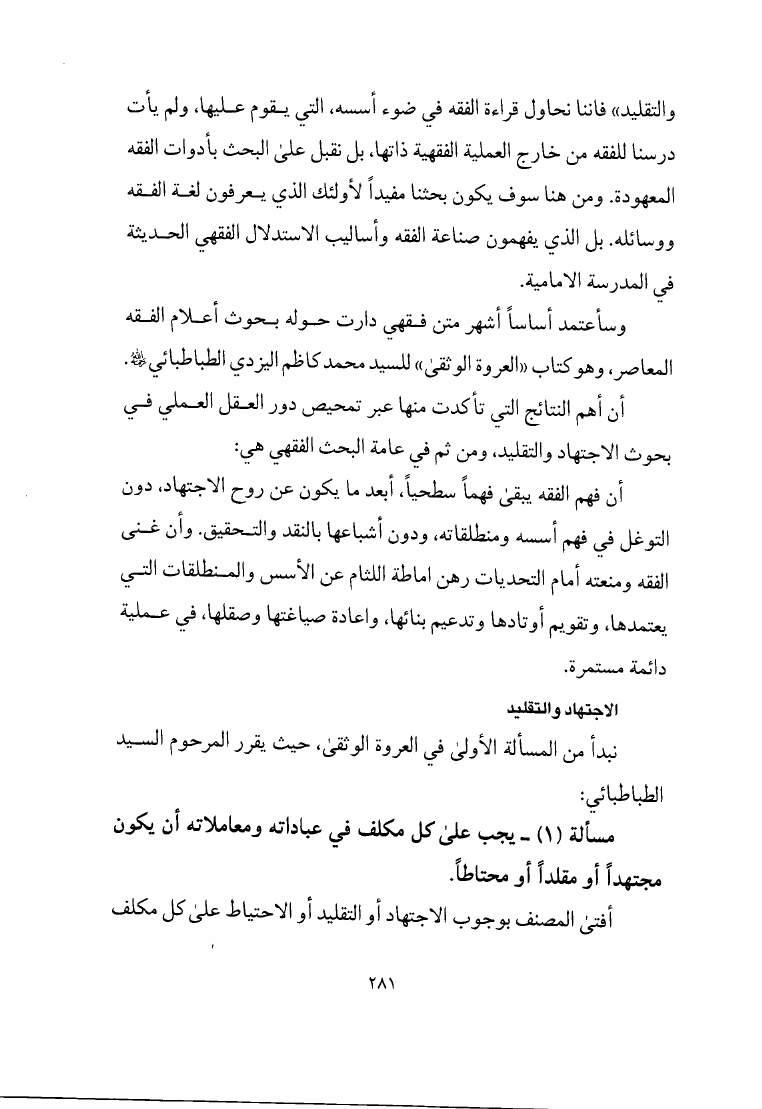 والتقليد» فاننا نحاول قراءة الفقه في ضوء أسسه، التي يقوم عليها، ولم يأت
درسنا للفقه من خارج العملية الفقهية ذاتها، بل نقبل علىٰ البحث بأدوات الفقه
المعهودة. ومن هنا سوف يكون بحثنا مفيداً لأولئك الذي يعرفون لغة الفقه
ووسائله. بل الذي يفهمون صناعة الفقه وأساليب الاستدلال الفقهي الحديثة
في المدرسة الامامية.
وسأعتمد أساساً أشهر متن فقهي دارت حوله بحوث أعلام الفقه
المعاصر، وهو كتاب «العروة الوثقىٰ» للسيد محمد كاظم اليزدي الطباطبائي.
أن أهم النتائج التي تأكدت منها عبر تمحيص دور العقل العملي في
بحوث الاجتهاد والتقليد، ومن ثم في عامة البحث الفقهي هي:
أن فهم الفقه يبقىٰ فهماً سطحياً، أبعد ما يكون عن روح الاجتهاد، دون
التوغل في فهم أسسه ومنطلقاته، ودون أشباعها بالنقد والتحقيق. وأن غنى
الفقه ومنعته أمام التحديات رهن اماطة اللثام عن الأسس والمنطلقات التي
يعتمدها، وتقويم أوتادها وتدعيم بنائها، واعادة صياغتها وصقلها، في عملية
دائمة مستمرة.
الاجتهاد والتقليد
نبدأ من المسألة الأولىٰ في العروة الوثقىٰ، حيث يقرر المرحوم السيد
الطباطبائي:
مسألة (١) ـ يجب علىٰ كل مكلف في عباداته ومعاملاته أن يكون
مجتهداً أو مقلداً أو محتاطاً.
أفتىٰ المصنف بوجوب الاجتهاد أو التقليد أو الاحتياط علىٰ كل مكلف
٢٨١